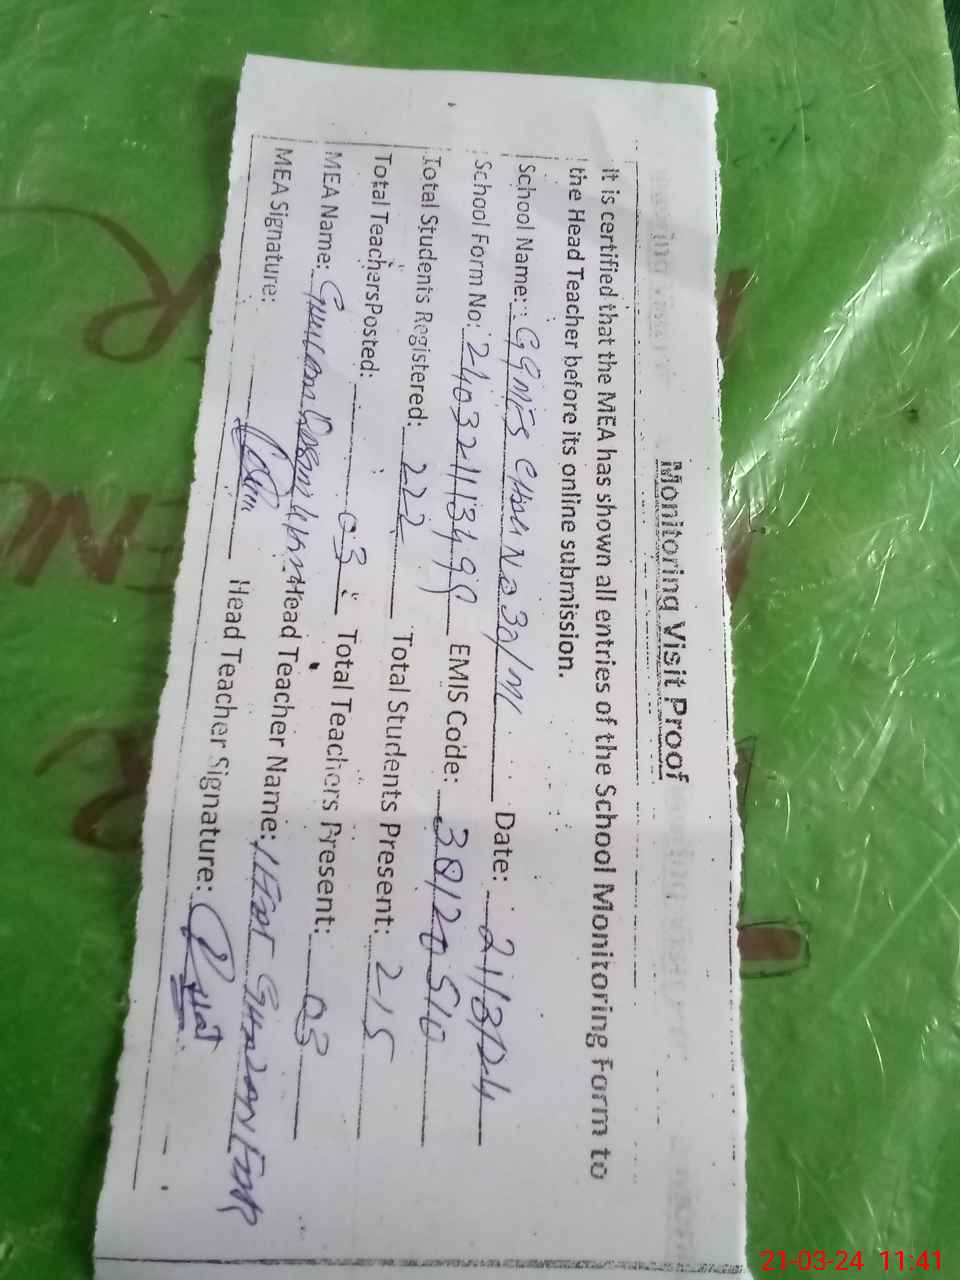 Monitoring Visit Proof
It is certified that the MEA has shown all entries of the School Monitoring Form to
the Head Teacher before its online submission.
School Name: GGMES Chak No 30/M Date: 21/3/24
School Form No: 240321113499 EMIS Code: 38120510
Total Students Registered: 222 Total Students Present: 215
Total Teachers Posted: 03 Total Teachers Present: 03
MEA Name: Ghulam Head Teacher Name:
MEA Signature: Head Teacher Signature:
21-03-24 11:41